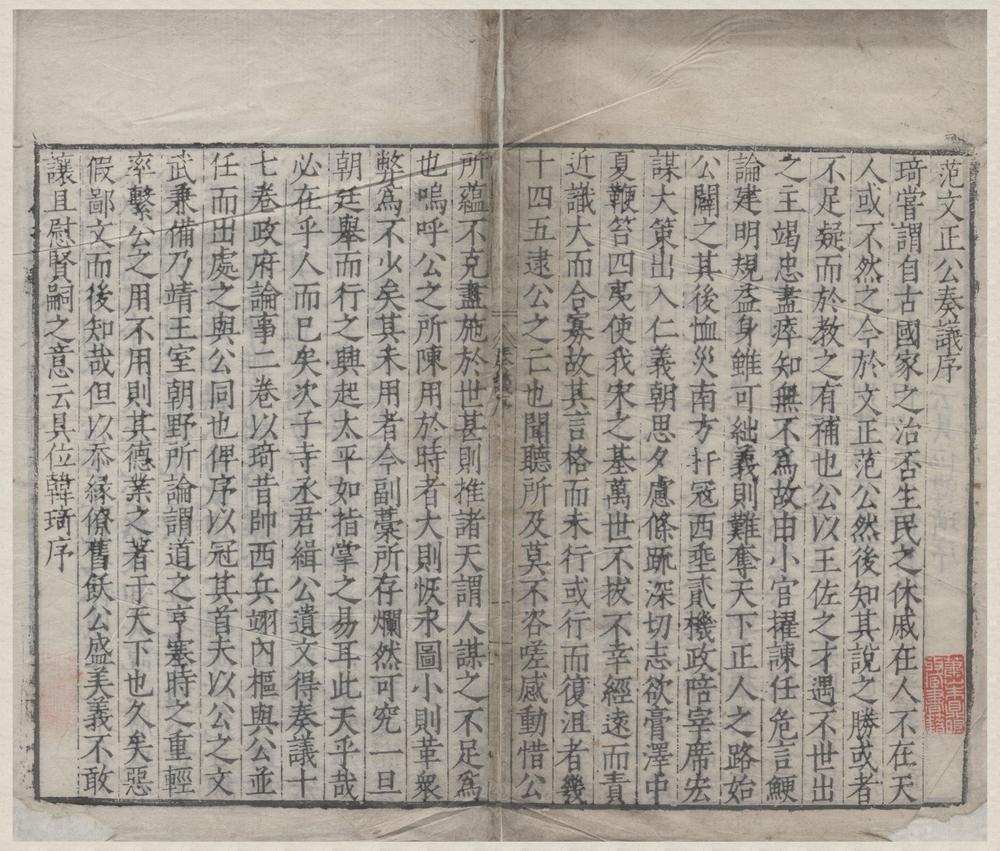 范文正公奏議序
琦嘗謂自古國家之治否生民之休戚在人不在天
人或不然之今於文正范公然後知其說之勝或者
不足疑而於教之有補也公以王佐之才遇不世出
之主竭忠盡瘁知無不爲故由小官擢諫任危言鯁
論建明規益身雖可絀義則難奪天下正人之路始
公闢之其後恤災南方扞寇西垂貳機政陪宰席宏
謀大策出入仁義朝思夕慮條疏深切志欲膏澤中
夏鞭笞四夷使我宋之基萬世不拔不幸經遠而責
近識大而合寡故其言格而未行或行而復沮者幾
十四五逮公之亡也聞聽所及莫不咨嗟感動惜公
所蘊不克盡施於世甚則推諸天謂人謀之不足爲
也嗚呼公之所陳用於時者大則恢永圖小則革衆
弊爲不少矣其未用者今副藁所存爛然可究一旦
朝廷舉而行之興起太平如指掌之易耳此天乎哉
必在乎人而已矣次子寺丞君緝公遺文得奏議十
七卷政府論事二卷以琦昔帥西兵翊內樞與公並
任而出處之與公同也俾序以冠其首夫以公之文
武兼備乃靖王室朝野所論謂道之亨塞時之重輕
率繫公之用不用則其德業之著于天下也久矣惡
假鄙文而後知哉但以忝緣僚舊飫公盛美義不敢
讓且慰賢嗣之意云具位韓琦序